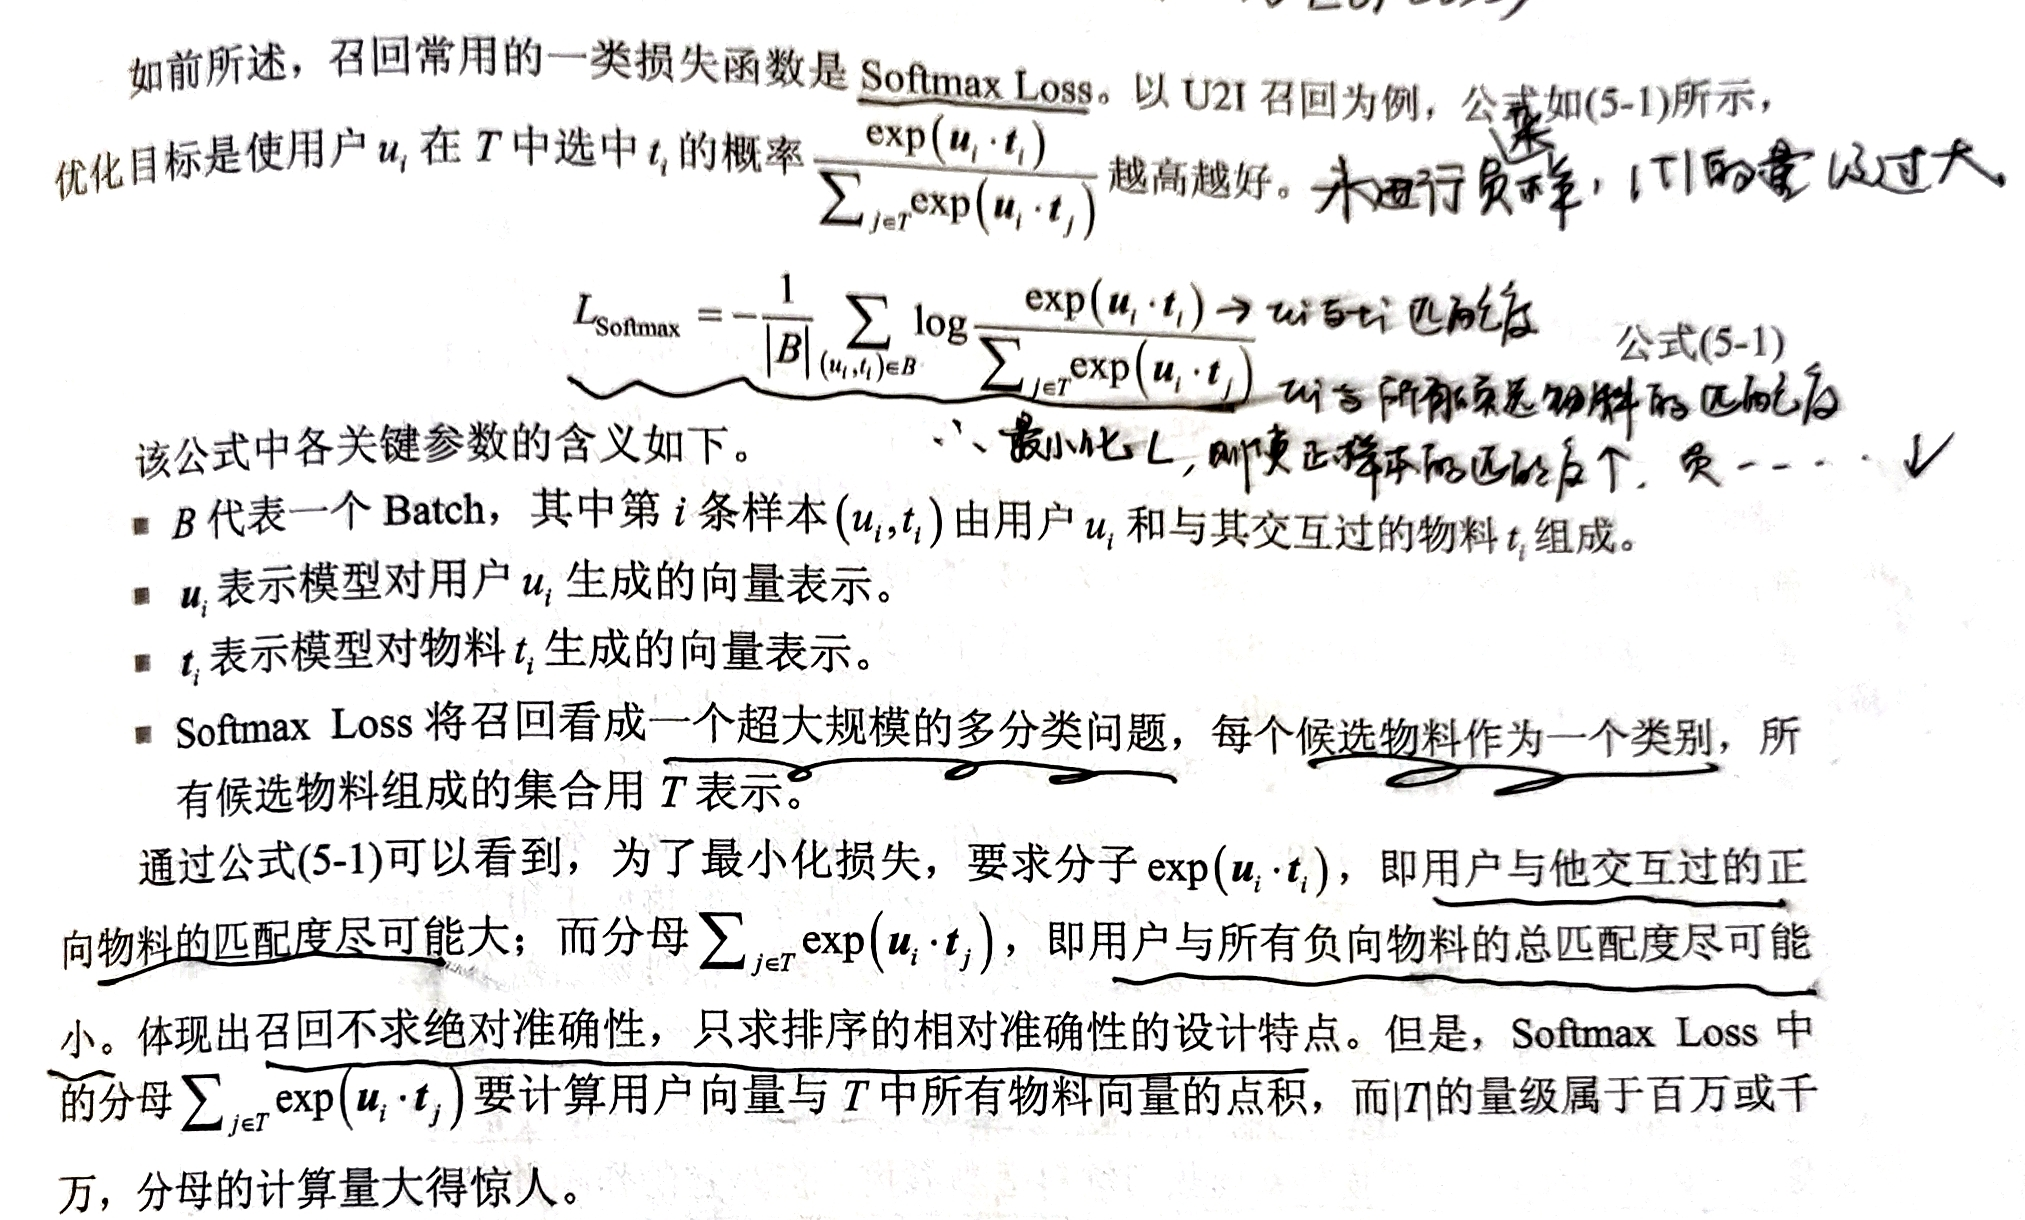 如前所述，召回常用的一类损失函数是 Softmax Loss。以 U2I 召回为例，公式如(5-1)所示，
优化目标是使用户 u_i 在 T 中选中 t_i 的概率 exp(u_i · t_i) / ∑_{j∈T} exp(u_i · t_j) 越高越好。未进行负采样，|T|的量级过大。
L_Softmax = -1/|B| ∑_{(u_i,t_i)∈B} log exp(u_i · t_i) / ∑_{j∈T} exp(u_i · t_j) 公式(5-1)
→ ui与ti匹配度
ui与所有候选物料的匹配度
该公式中各关键参数的含义如下。
∴最小化L, 则使正样本的匹配度↑. 负----↓
■ B 代表一个 Batch，其中第 i 条样本(u_i,t_i)由用户 u_i 和与其交互过的物料 t_i 组成。
■ u_i 表示模型对用户 u_i 生成的向量表示。
■ t_i 表示模型对物料 t_i 生成的向量表示。
■ Softmax Loss 将召回看成一个超大规模的多分类问题，每个候选物料作为一个类别，所
有候选物料组成的集合用 T 表示。
通过公式(5-1)可以看到，为了最小化损失，要求分子 exp(u_i · t_i)，即用户与他交互过的正
向物料的匹配度尽可能大；而分母 ∑_{j∈T} exp(u_i · t_j)，即用户与所有负向物料的总匹配度尽可能
小。体现出召回不求绝对准确性，只求排序的相对准确性的设计特点。但是，Softmax Loss 中
的分母 ∑_{j∈T} exp(u_i · t_j) 要计算用户向量与 T 中所有物料向量的点积，而|T|的量级属于百万或千
万，分母的计算量大得惊人。